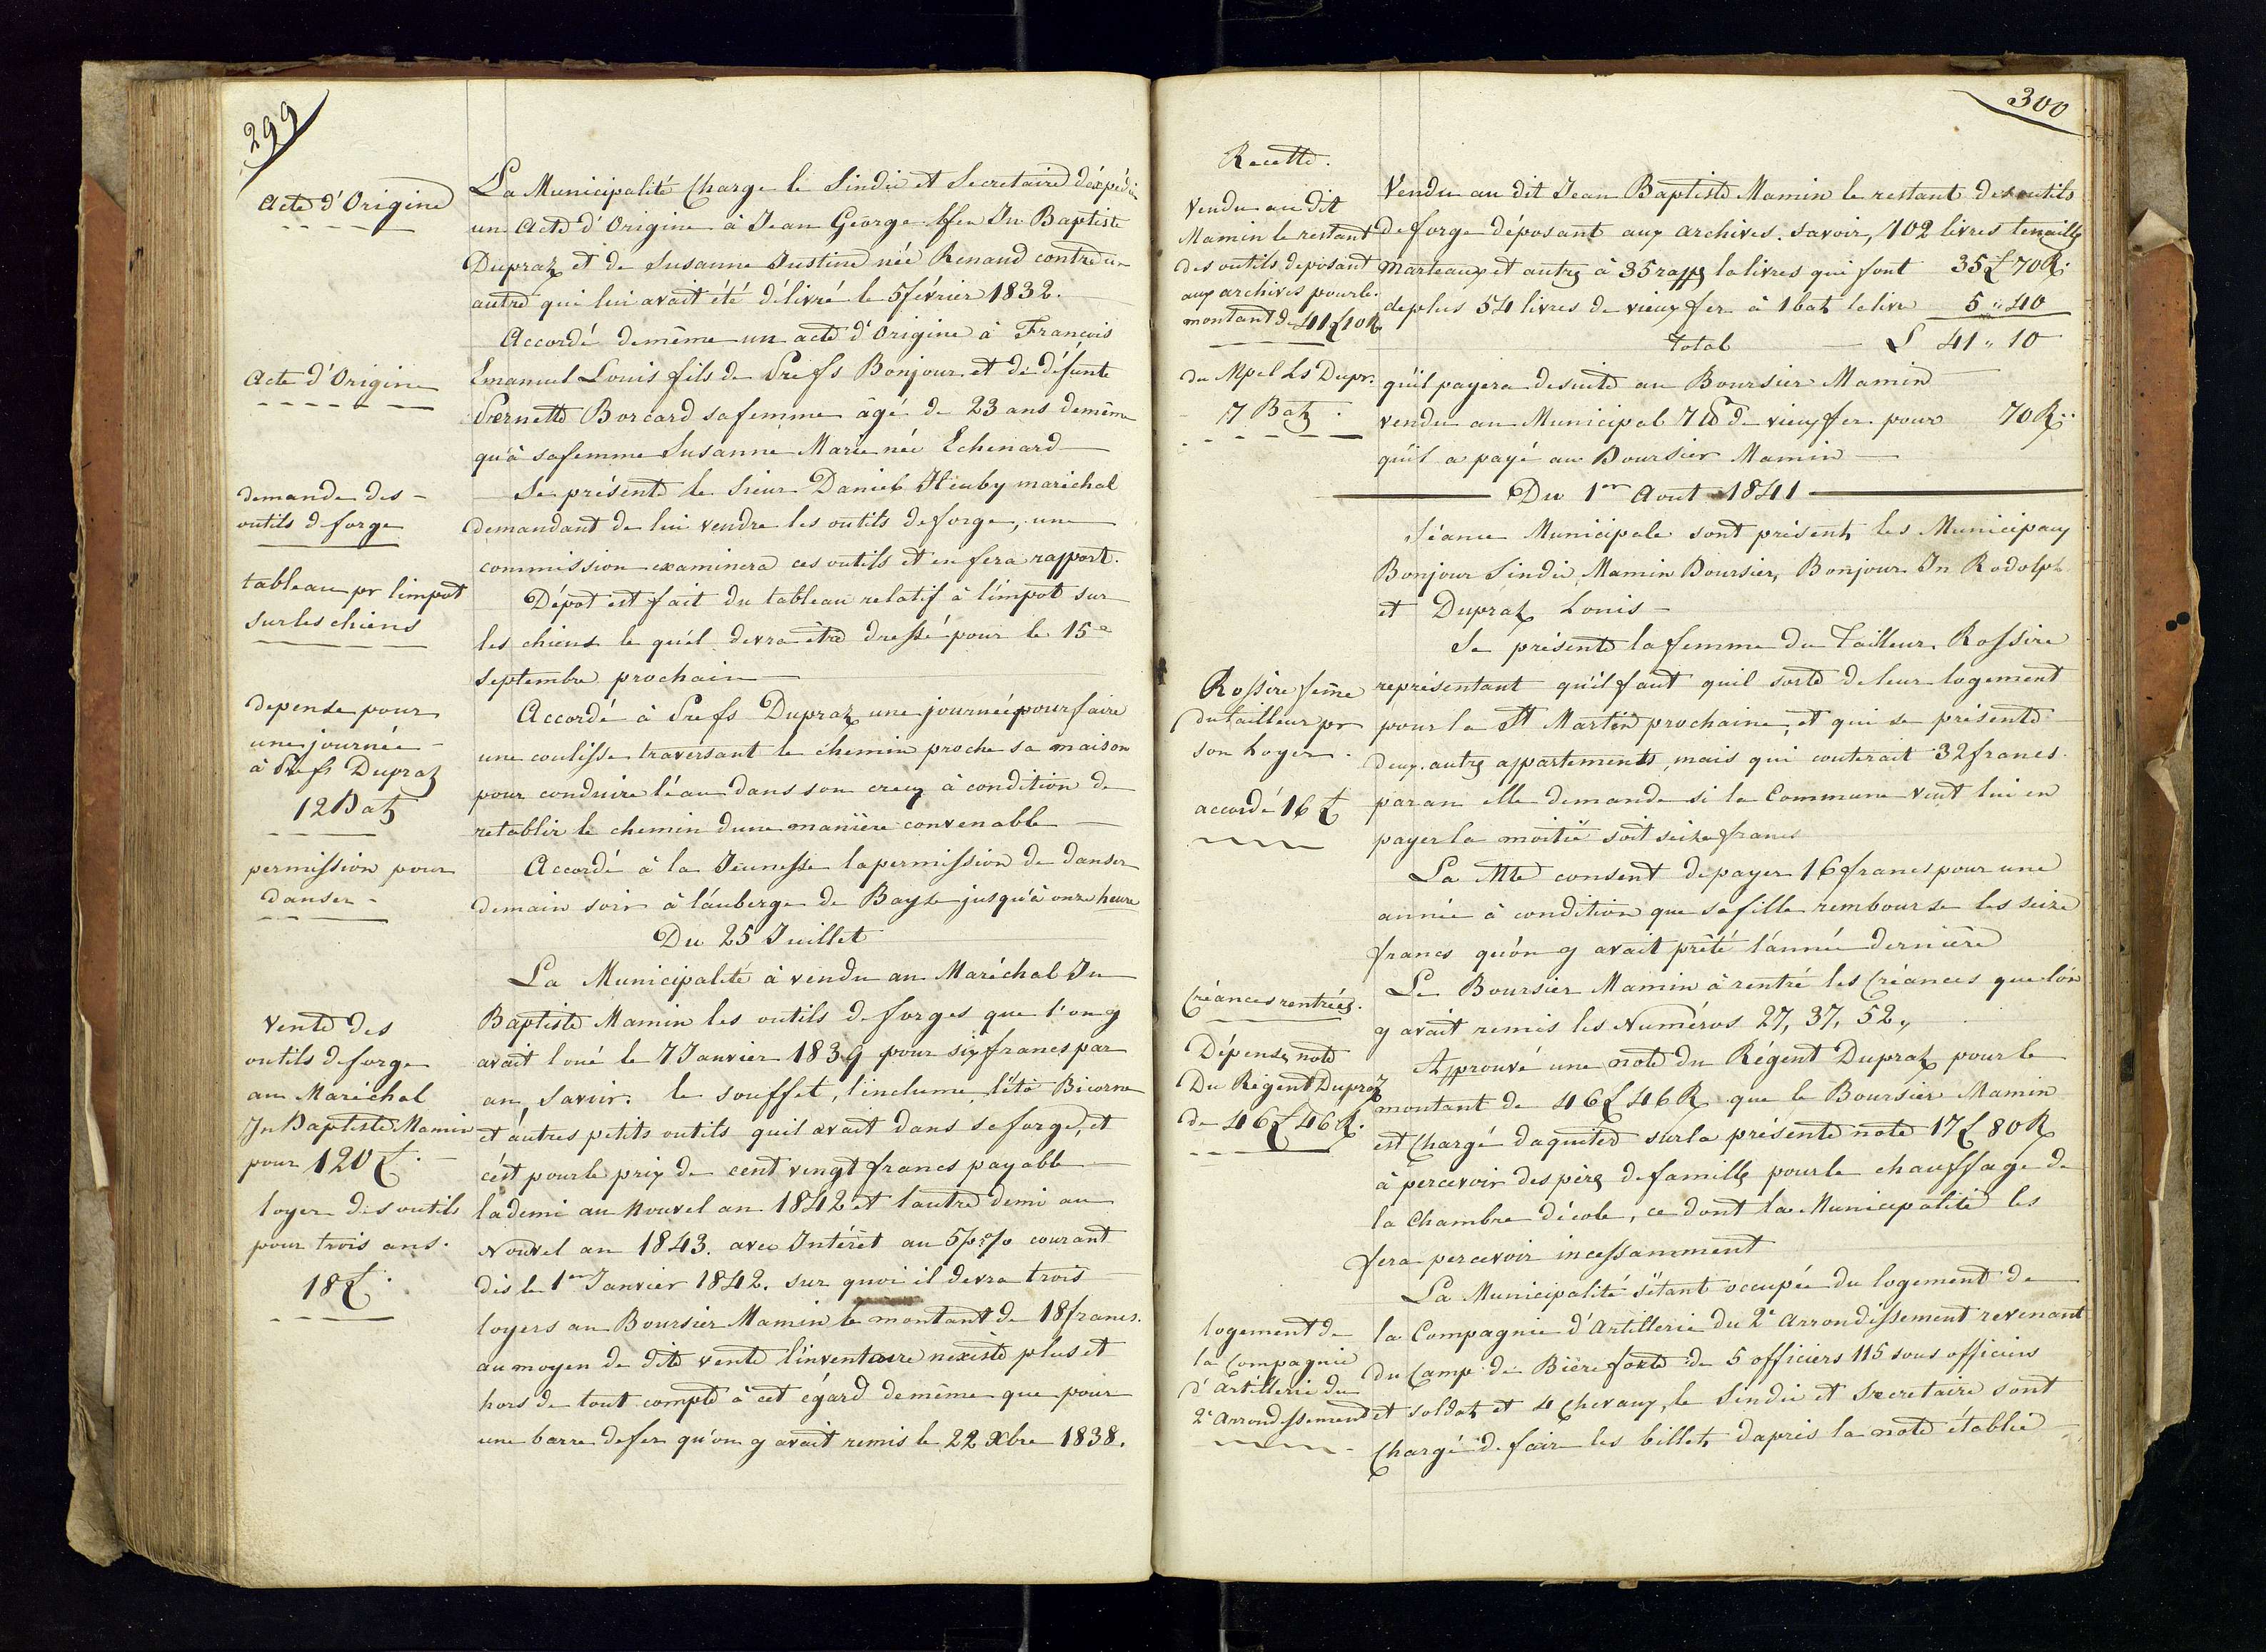 299
Acte d'Origine
La Municipalité Charge le Sindic et Secretaire d'éxpédier
un Acte d'Origine à Jean George ffeu Jn Baptiste
Dupraz et de Susanne Justine née Renaud contre un
autre qui lui avait été délivré le 5 février 1832.
Acte d'Origine
Accordé demême un acte d'Origine à François
Emanuel Louis fils de Prefs Bonjour et de défunte
Pernette Borcard sa femme âgé de 23 ans demême
qu'à sa femme Susanne Marie née Echenard
demande des
outils de forge
Se présente le Sieur Daniel maréchal
demandant de lui vendre les outils de forge, une
commission examinera ces outils et en fera rapport.
tableau pr l'impot
sur les chiens
Dépot est fait du tableau relatif à l'impot sur
les chiens le quél devra être dressé pour le 15e
Septembre prochain
depense pour
une journée
à Prefs Dupraz
12 Batz
Accordé à Prefs Dupraz une journée pour faire
une coulisse traversant le chemin proche sa maison
pour conduire l'éau dans son creux à condition de
retablir le chemin dune manière convenable
permission pour
danser
Accordé à la Jeunesse la permission de danser
demain soir à l'áuberge de Bayse jusqu'à onze heure
Du 25 Juillet
Vente des
outils de forge
au Maréchal
Jn Baptiste Mamin
pour 120 £.
La Municipalité à vendu au Maréchal Jn
Baptiste Mamin les outils de forges que l'on y
avait loué le 7 Janvier 1839 pour six francs par
an, savoir. le souffet, l'inclume, l'éto Bicorne
et autres petits outils quil avait dans sa forge, et
c'ést pour le prix de cent vingt francs payable
loyer des outils
pour trois ans.
18 £.
la demi au Nouvel an 1842 et l'autre demi au
Nouvel an 1843. avec Intérêt au 5 pr % courant
dès le 1er Janvier 1842. sur quoi il devra trois
loyers au Boursier Mamin le montant de 18 francs.
au moyen de dite vente l'inventaire n'existe plus et
hors de tout compte à cet égard demême que pour
une barre de fer qu'on y avait remis le 22 Xbre 1838.
300
Recette.
Vendu au dit
Mamin le restant
des outils deposant
aux archives pour le
montant de 41 £ 10 R
Vendu au dit Jean Baptiste Mamin le restant des outils
de forge déposant aux archives. savoir, 102 livres tenailles
Marteaux et autres à 35 rapps la livres qui font 35 £ 70 R.
deplus 54 livres de vieux fer à 1 batz la livre 5 " 40
total £ 41 " 10
qu'il payera de suite au Boursier Mamin
du Mpel Ls Dupr.
7 Batz.
vendu au Municipal 7 lb de vieux fer pour 70 R.
qu'il a payé au Boursier Mamin
Du 1er Aout 1841
Séance Municipale sont présents les Municipaux
Bonjour Sindic, Mamin Boursier, Bonjour Jn Rodolph
et Dupraz Louis
Rossire feme
du tailleur pr
son Loyer.
accordé 16 £
Se présente la femme du Tailleur Rossire
représentant qu'il faut quil sorte de leur logement
pour la St Martin prochaine, et qui se présente
deux autres appartements, mais qui couterait 32 francs.
par an elle demande si la Commune veut lui en
payer la moitié soit seize francs
La Mté consent de payer 16 francs pour une
année à condition que sa fille rembourse les seize
francs qu'ón y avait prêté l'année dernière
Créances rentrées.
Le Boursier Mamin à rentré les Créances que l'ón
y avait remis les Numéros 27, 37, 52,
Dépense note
Du Régent Dupraz
de 46 £ 46 R.
Approuvé une note du Régent Dupraz pour le
montant de 46 £ 46 R que le Boursier Mamin
est Chargé daquiter sur la présente note 17 £ 80 R
à percevoir des pères de famille pour le chauffage de
la Chambre d'école, ce dont la Municipalité les
fera percevoir incessamment
logement de
la Compagnie
d'Artillerie du
2e Arrondissement
La Municipalité s'étant occupée du logement de
la Compagnie d'Artillerie du 2e Arrondissement revenant
du Camp de Bière forte de 5 officiers 115 sous officiers
et soldats et 4 Chevaux, le Sindic et Secretaire sont
Chargé de faire les billets daprès la note établie